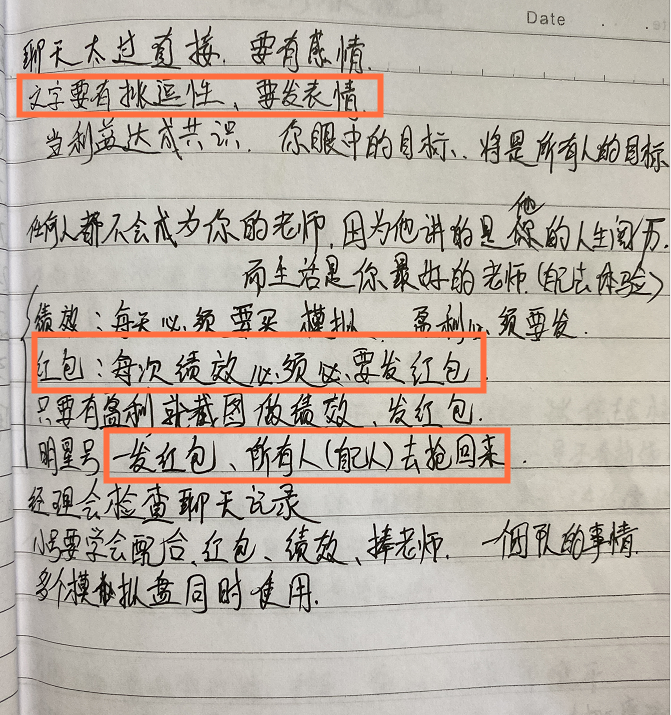 Date
聊天太过直接、要有感情.
文字要有挑逗性、要发表情.
当利益达成共识. 你眼中的目标、将是所有人的目标
任何人都不会成为你的老师,因为他讲的是他的人生阅历.
而生活是你最好的老师.(自己去体验)
绩效:每天必须要买 模拟. 盈利必须要发.
红包:每次绩效必须必要发红包
只要有盈利就截图做绩效、发红包.
明星号 一发红包、所有人(自己人)去抢回来.
经理会检查聊天记录
小号要学会配合、红包、绩效、捧老师. 一個团队的事情.
多个模拟盘同时使用.